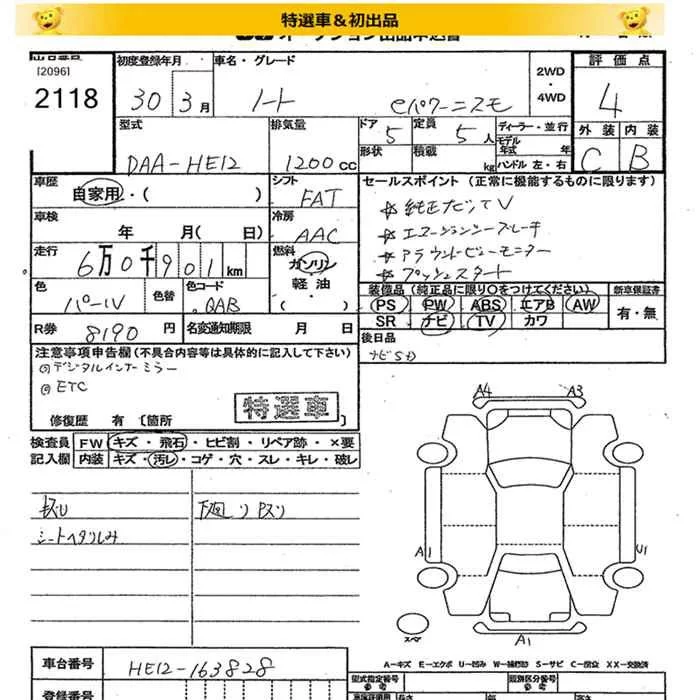 特選車＆初出品
[2096]
2118
初度登録年月
30年3月
車名・グレード
ノート eパワーニスモ
2WD
・
4WD
評価点
4
型式
DAA-HE12
排気量
1200cc
ドア
5
定員
5人
形状
積載
kg
ディーラー・並行
モデル年式 年
ハンドル 左・右
外装 内装
C B
車歴
自家用・( )
シフト
FAT
車検
年 月( 日)
冷房
AAC
走行
6万0千901km
燃料
ガソリン
軽油
・( )
色
パール
色替
色コード
QAB
R券 8190円
名変通知期限 月 日
セールスポイント（正常に機能するものに限ります）
☆ 純正ナビTV
☆ エマージェンシーブレーキ
☆ アラウンドビューモニター
☆ プッシュスタート
装備品（純正品に限り○をつけてください）
PS PW ABS エアB AW
SR ナビ TV カワ
新車保証書
有・無
後日品
ナビSD
注意事項申告欄（不具合内容等は具体的に記入して下さい）
デジタルインナーミラー
ETC
特選車
修復歴 有〔箇所
検査員記入欄
FW キズ・飛石・ヒビ割・リペア跡・×要
内装 キズ・汚レ・コゲ・穴・スレ・キレ・破レ
下廻りサビ
A4 A3
A1 U1
スペア
A1
A－キズ E－エクボ U－凹み W－補修跡 S－サビ C－腐食 XX－交換済
車台番号
HE12-163828
登録番号
型式指定番号
類別区分番号
長さ 幅 高さ